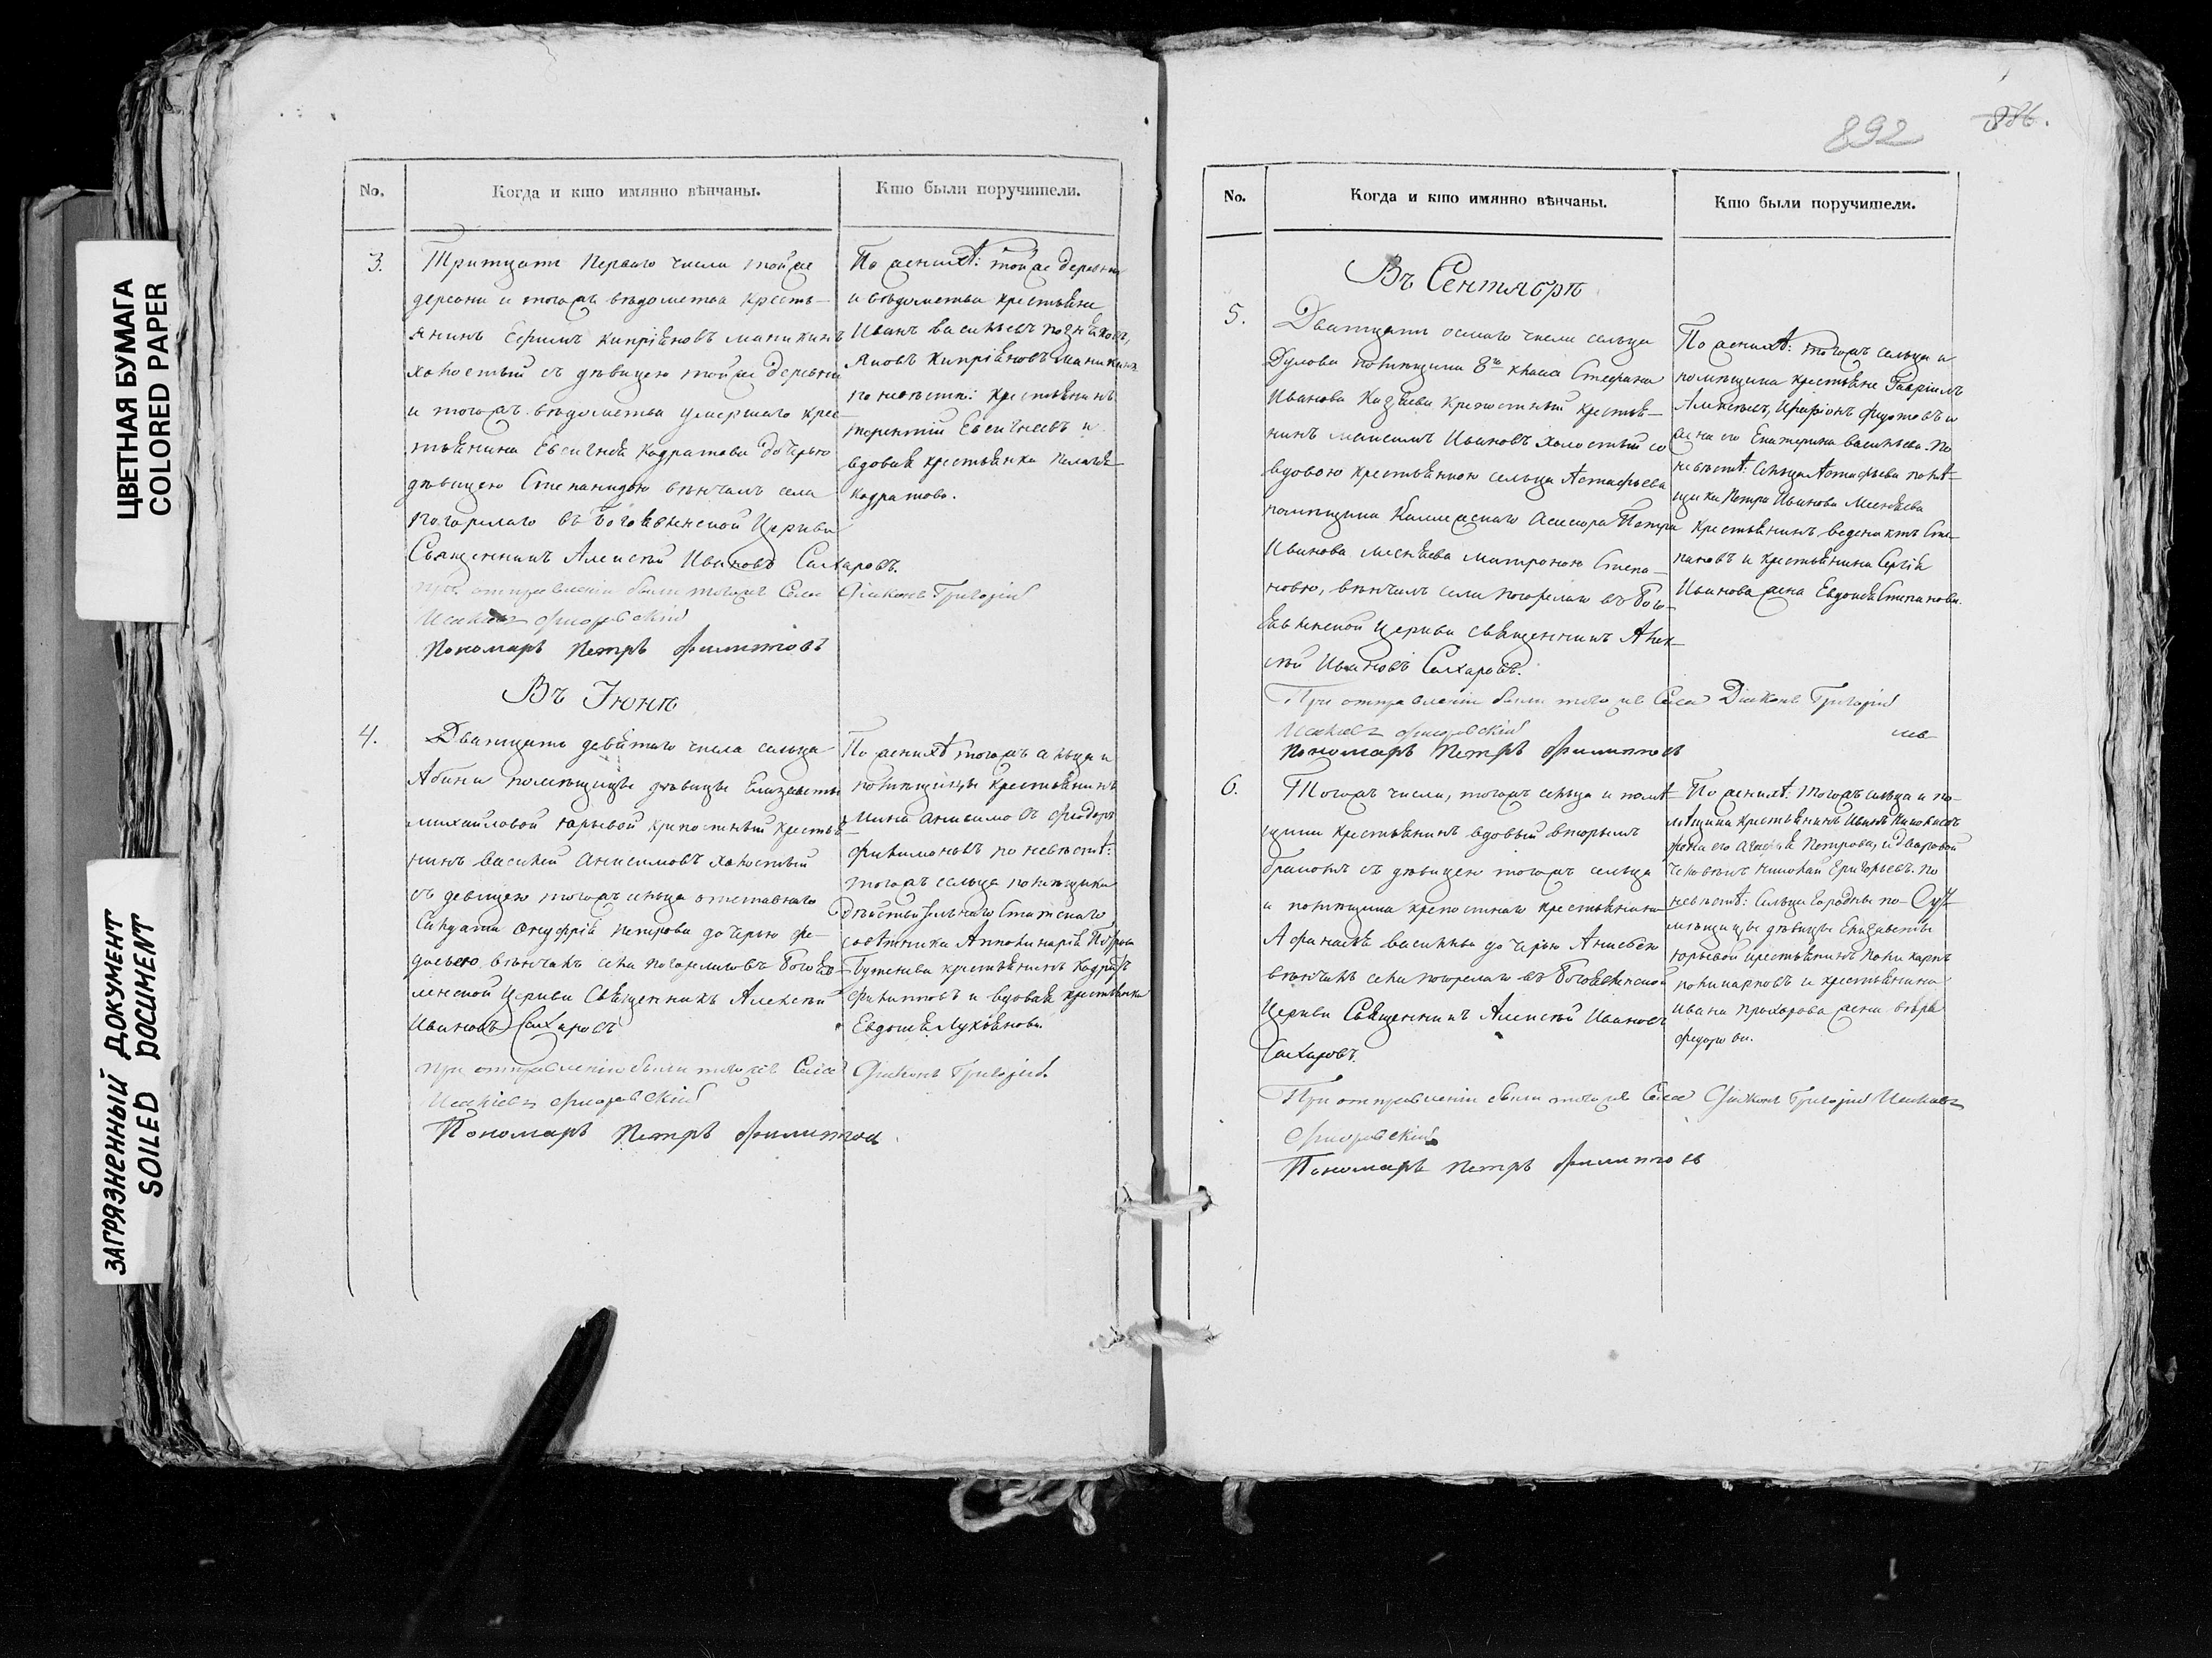 ЦВЕТНАЯ БУМАГА
COLORED PAPER
ЗАГРЯЗНЕННЫЙ ДОКУМЕНТ
SOILED DOCUMENT
No. Когда и кто имянно вѣнчаны. Кто были поручители.
3.
Тритцать перваго числа тойже
деревни и тогожъ вѣдомства кресть-
янинъ Ефимъ Кипріяновъ Маникинъ
холостый съ дѣвицею тойже деревни
и тогожъ вѣдомства умершаго крес-
тьянина Евсигнѣя Кадратова дочерью
дѣвицею Степанидою вѣнчалъ села
Погорелаго въ Богоявленской Церкви
Священникъ Алексѣй Ивановъ Сахаровъ.
При отправленіи были тогоже Села Діаконъ Григорій
Исакіевъ Флоровскій
Пономарь Петръ Филиповъ
По женихѣ: тойже деревни
и вѣдомства крестьяне
Иванъ Васильевъ Позняковъ,
Яковъ Кипріяновъ Маникинъ
по невѣсте: крестьянинъ
Терентій Евсигнеевъ и
вдовая крестьянка Пелагѣя
Кадратова.
Въ Іюнѣ
4.
Двантцать девятаго числа сельца
Абини помѣщицы дѣвицы Елизаветы
Михайловой Юрьевой крепостный крестья-
нинъ Василей Анисимовъ холостый
съ девицею тогожъ сельца отставнаго
Салдата Онуфрія Петрова дочерью Фе-
досьею вѣнчалъ села Погорелаго въ Богояв-
ленской Церкви Священникъ Алексѣй
Ивановъ Сахаровъ
при отправленіи были тогоже Села Діаконъ Григорій
Исакіевъ Флоровскій
Пономарь Петръ Филиповъ
По женихѣ тогожъ сельца и
помѣщицы крестьянинъ
Мина Анисимовъ Феодоръ
Филимоновъ по невѣсте:
тогожъ сельца помѣщика
Дѣйствительнаго Статскаго
советника Апполинарія Петрова
крестьянинъ Кадратъ
Филипповъ и вдовая крестьянка
Евдокѣя Лукьянова.
892
886.
No. Когда и кто имянно вѣнчаны. Кто были поручители.
Въ Сентябрѣ
5.
Дватцать осмаго числа сельца
Дулова помѣщика 8го класа Стефана
Иванова крепостный крестья-
нинъ Максимъ Ивановъ холостый со
вдовою крестьянкою сельца Астафьева
помѣщика Коллежскаго Асесора Петра
Иванова Матроною Степа-
новою, вѣнчалъ села Погорелаго въ Бого-
явленской Церкви Священникъ Алек-
сѣй Ивановъ Сахаровъ.
При отправленіи были тогоже Села Діаконъ Григорій
Исакіевъ Флоровскій
Пономарь Петръ Филипповъ
По женихѣ: тогожъ сельца и
помѣщика крестьяне Гавріилъ
Алексѣевъ, Федотовъ и
жена его Екатерина Васильева. По
невѣстѣ: Сельца Астафьева помѣ-
щика Петра Иванова
крестьянинъ Сте-
пановъ и крестьянина Сергія
Иванова жена Евдокія Степанова.
6.
Тогожъ числа, тогожъ сельца и помѣ-
щика крестьянинъ вдовый вторымъ
бракомъ съ дѣвицею тогожъ сельца
и помѣщика крепостнаго крестьянина
Афанасья Васильева дочерью Анисьею
вѣнчалъ села Погорелаго въ Богоявленской
Церкви Священникъ Алексѣй Ивановъ
Сахаровъ.
При отправленіи были тогоже Села Діаконъ Григорій Исакіевъ
Флоровскій
Пономарь Петръ Филиповъ
По женихѣ: тогожъ сельца и по-
мѣщика крестьянинъ Иванъ
жена его Петрова, и дворовой
человѣкъ Николай Григорьевъ. По
невѣстѣ: Сельца по-
мѣщицы дѣвицы Елизаветы
Юрьевой крестьянинъ Поликарпъ
Поликарповъ и крестьянина
Ивана Прохорова жена Вѣра
Федорова.